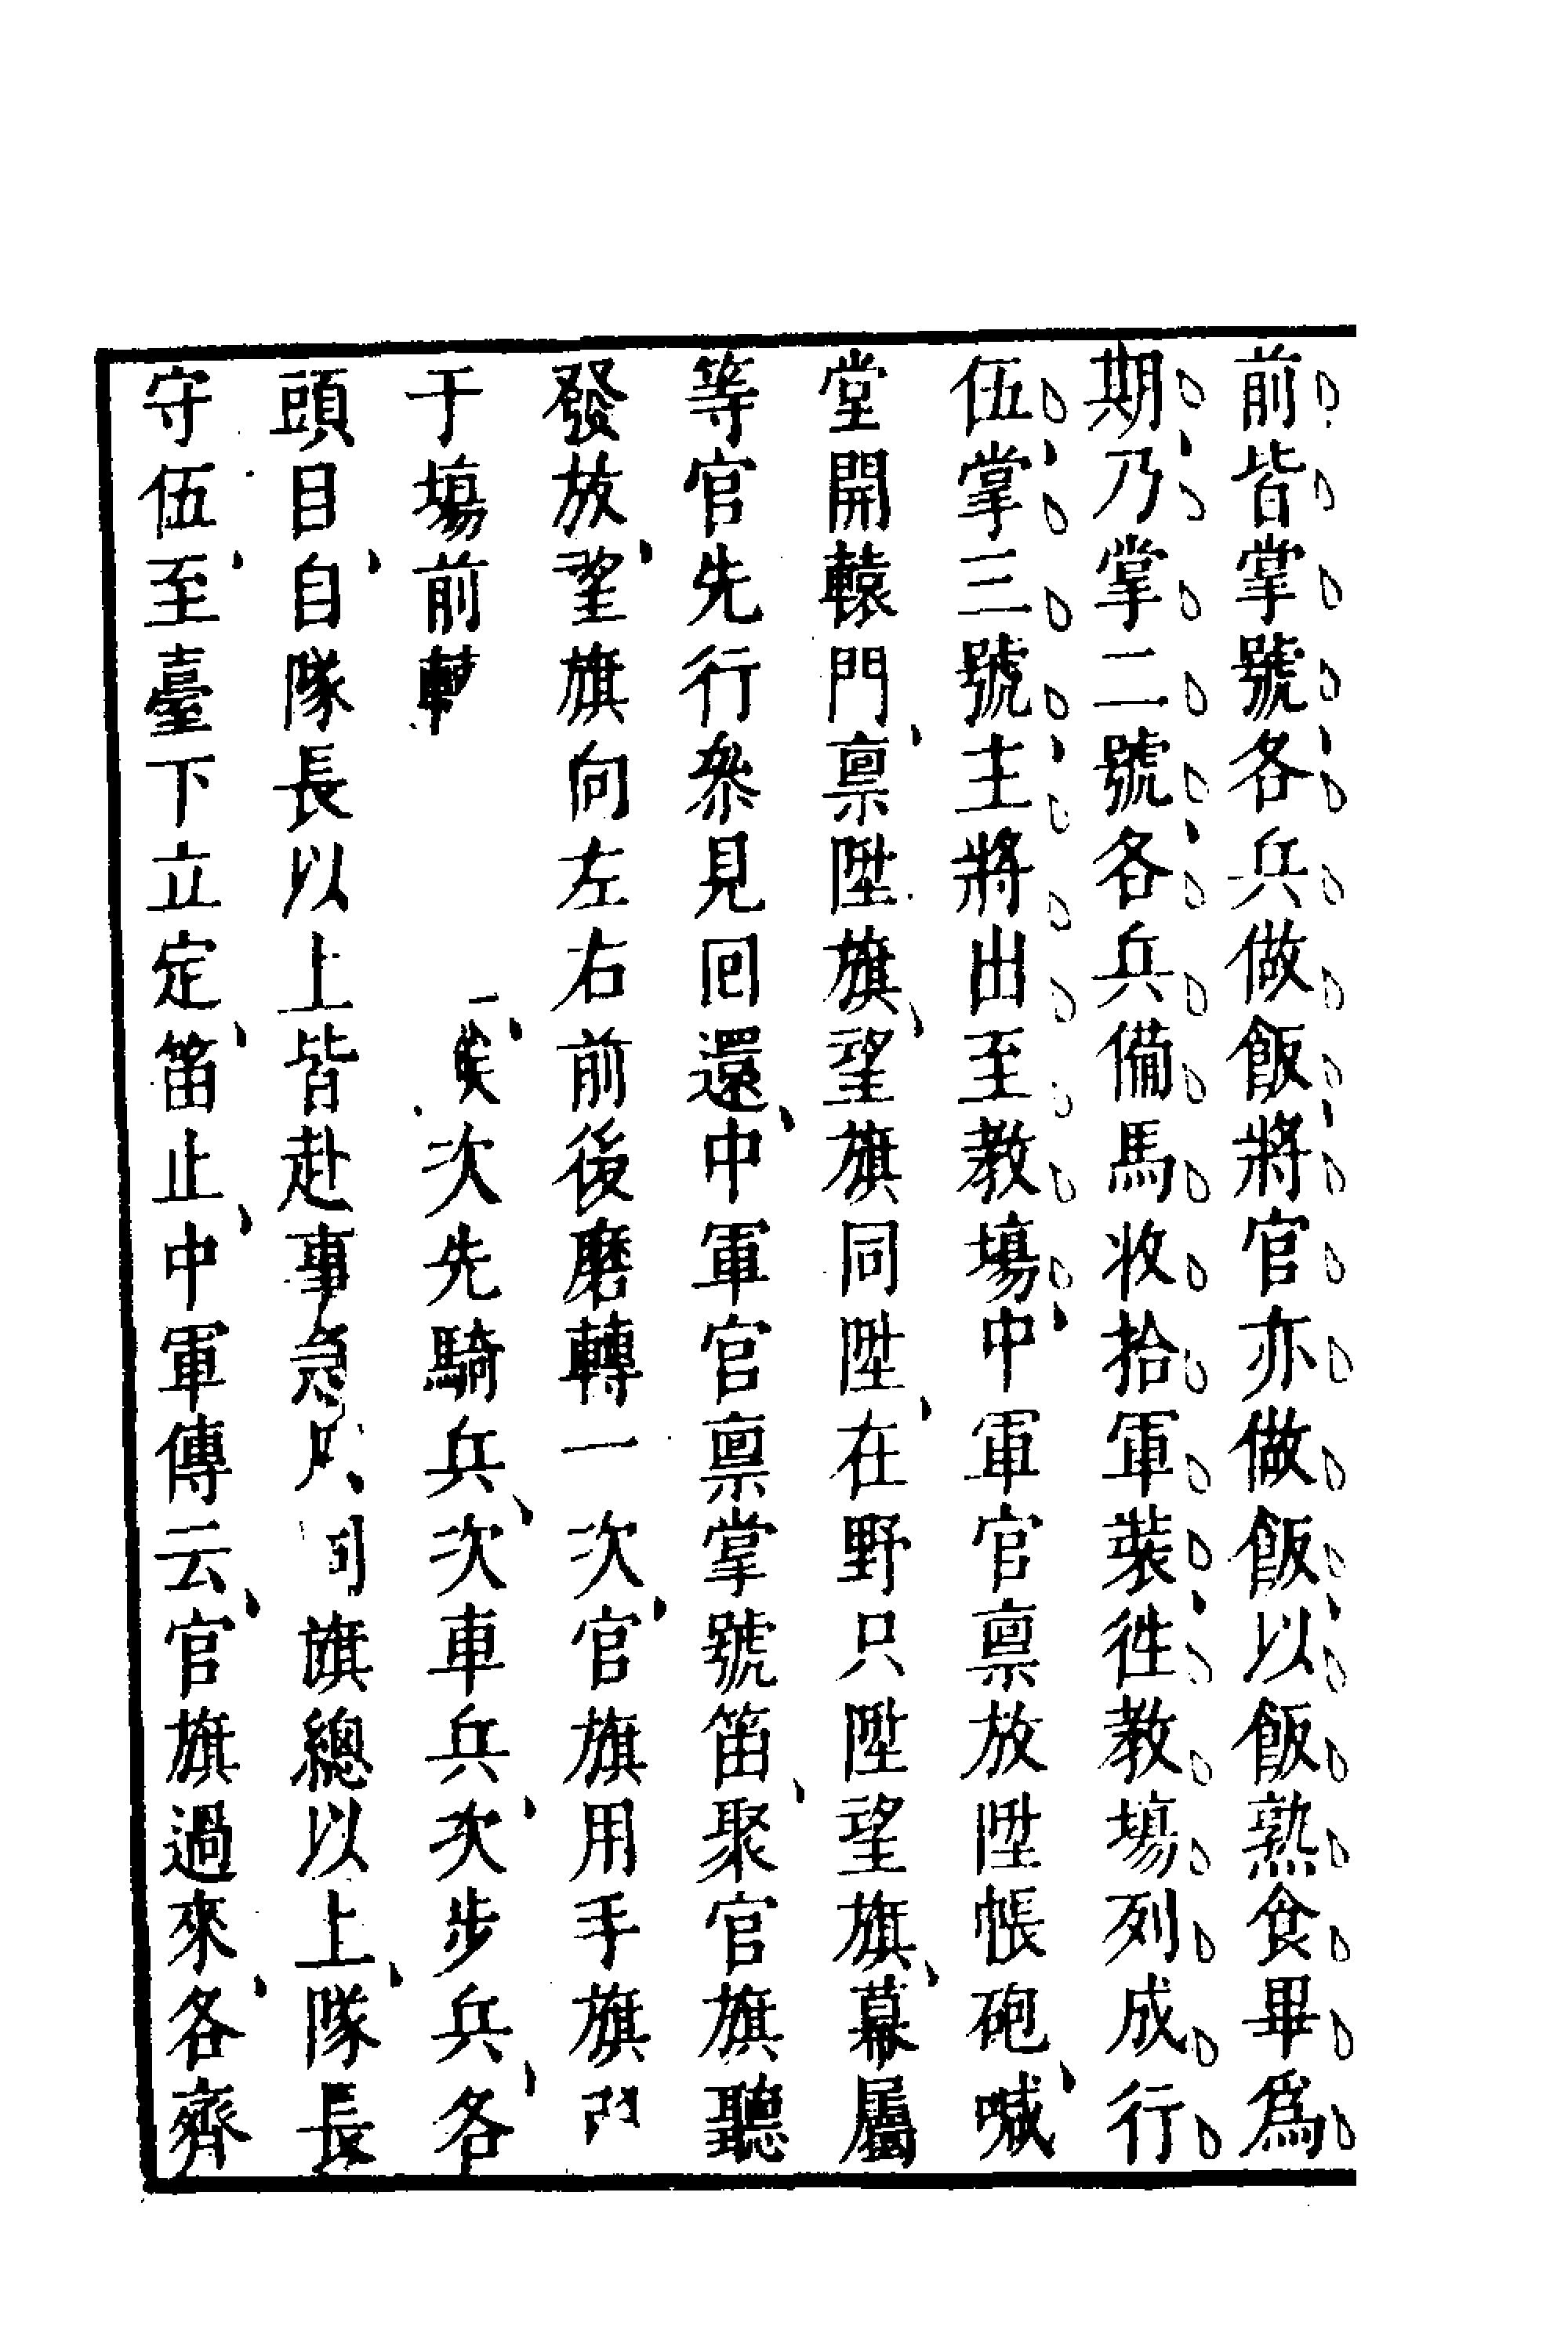 前皆掌號各兵做飯將官亦做飯以飯熟食畢爲
期乃掌二號各兵備馬收拾軍裝徃教場列成行
伍掌三號主將出至教場中軍官禀放陞帳砲喊
堂開轅門禀陞旗望旗同陞在野只陞望旗幕屬
等官先行叅見回還中軍官禀掌號笛聚官旗聽
發放望旗向左右前後磨轉一次官旗用手旗
于場前 次先騎兵次車兵次步兵各
頭目自隊長以上皆赴事急 同旗總以上隊長
守伍至臺下立定笛止中軍傳云官旗過來各齊